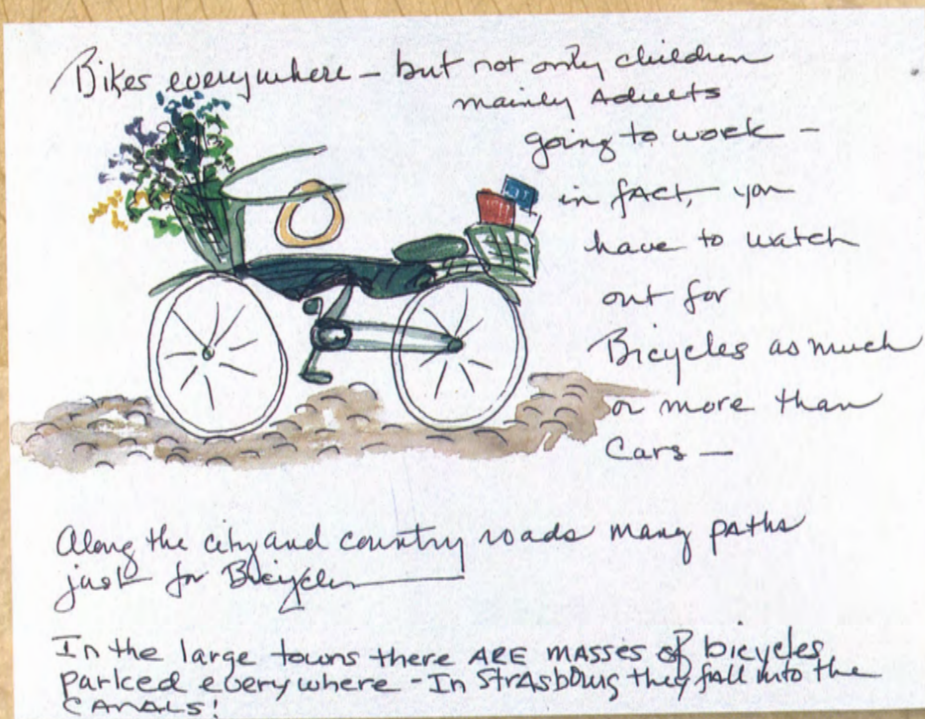 Bikes everywhere – but not only children
mainly Adults
going to work –
in fact, you
have to watch
out for
Bicycles as much
or more than
Cars —
Along the city and country roads many paths
just for Bicycles
In the large towns there ARE MASSES of bicycles
parked everywhere - In Strasbourg they fall into the
CANALS!